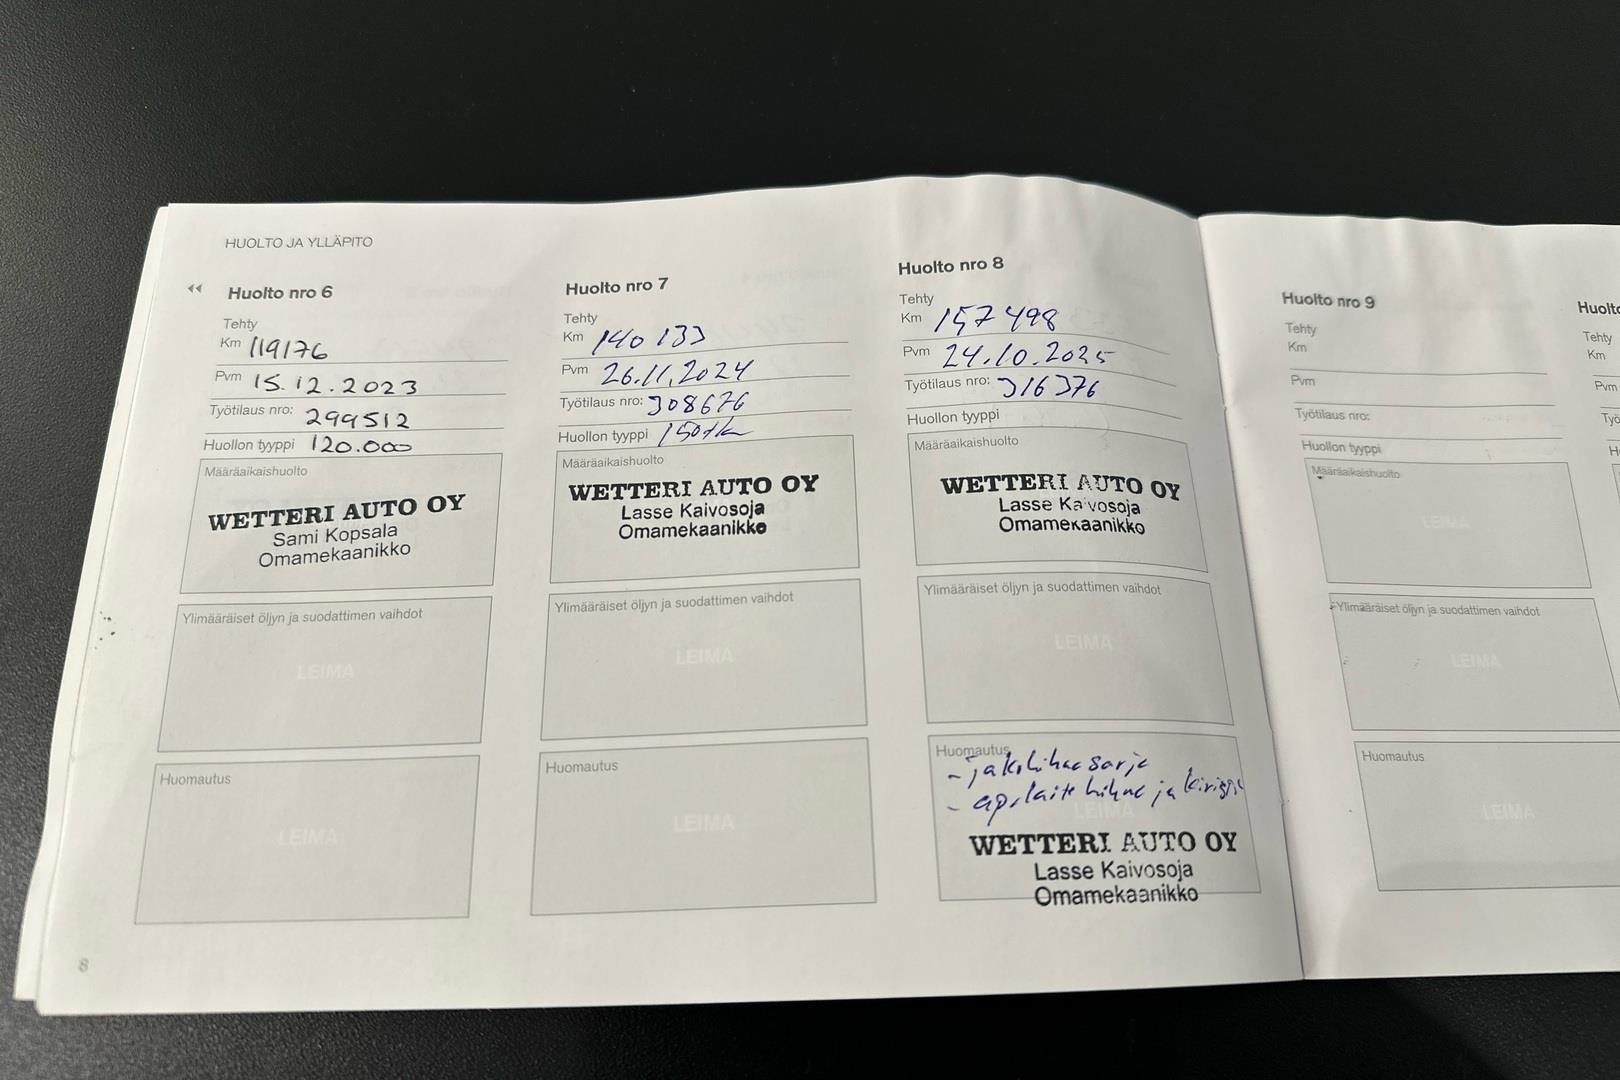 HUOLTO JA YLLÄPITO
Huolto nro 6
Tehty
Km 119176
Pvm 15.12.2023
Työtilaus nro: 299512
Huollon tyyppi 120.000
Määräaikaishuolto
WETTERI AUTO OY
Sami Kopsala
Omamekaanikko
Ylimääräiset öljyn ja suodattimen vaihdot
LEIMA
Huomautus
LEIMA
8
Huolto nro 7
Tehty
Km 140 133
Pvm 26.11.2024
Työtilaus nro: 308676
Huollon tyyppi 150tkm
Määräaikaishuolto
WETTERI AUTO OY
Lasse Kaivosoja
Omamekaanikko
Ylimääräiset öljyn ja suodattimen vaihdot
LEIMA
Huomautus
LEIMA
Huolto nro 8
Tehty
Km 157 498
Pvm 24.10.2025
Työtilaus nro: 316376
Huollon tyyppi
Määräaikaishuolto
WETTERI AUTO OY
Lasse Kaivosoja
Omamekaanikko
Ylimääräiset öljyn ja suodattimen vaihdot
LEIMA
Huomautus
- jakohihnasarja
- apulaite hihna ja
LEIMA
WETTERI AUTO OY
Lasse Kaivosoja
Omamekaanikko
Huolto nro 9
Tehty
Km
Pvm
Työtilaus nro:
Huollon tyyppi
Määräaikaishuolto
LEIMA
Ylimääräiset öljyn ja suodattimen vaihdot
LEIMA
Huomautus
LEIMA
Tehty
Km
Pvm